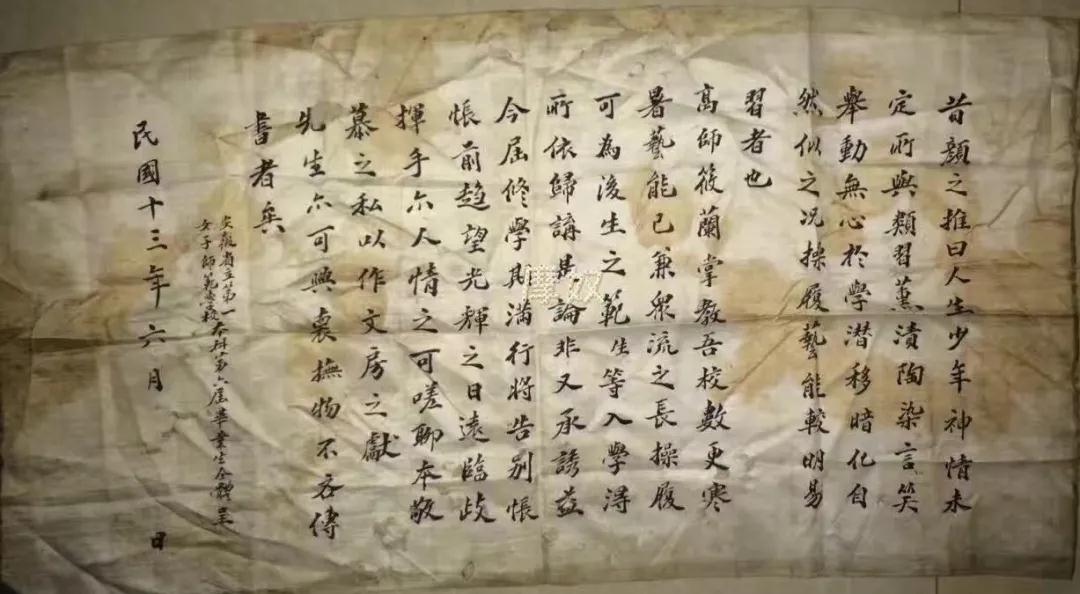 昔顏之推曰人生少年神情未
定所與類習薰漬陶染言笑
舉動無心於學潜移暗化自
然似之况操履藝能較明易
習者也
高師筱蘭掌教吾校數更寒
暑藝能已兼眾流之長操履
可為後生之範生等入學得
所依歸講是論非又承誘益
今屆修學期滿行將告別悵
帳前趨望光輝之日遠臨歧
揮手亦人情之可嗟聊本敬
慕之私以作文房之獻
先生亦可興衷撫物不吝傳
書者矣
安徽省立第一
女子師範學校本科第六屆畢業生全體呈
民國十三年六月 日